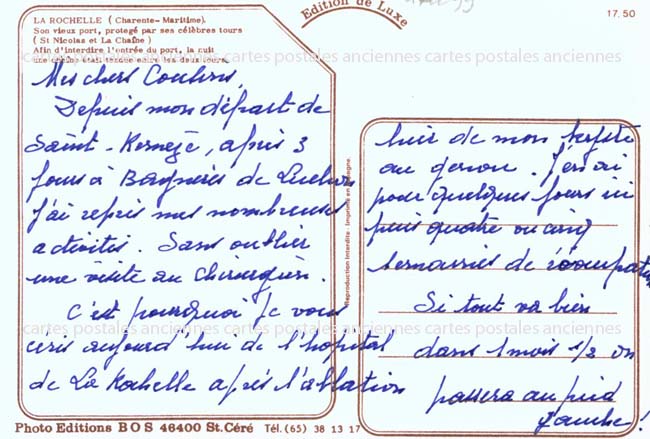 LA ROCHELLE (Charente-Maritime).
Son vieux port, protegé par ses célèbres tours
( St Nicolas et La Chaîne )
Afin d'interdire l'entrée du port, la nuit
une chaîne était tendue entre les deux tours.
Edition de Luxe
17.50
cartes postales anciennes cartes postales anciennes cartes postales anciennes
Mes chers Cousins,
Depuis mon départ de
Saint-, après 3
jours à Bagnères de Luchon
j'ai repris mes nombreuses
activités. Sans oublier
une visite au chirurgien.
C'est pourquoi je vous
écris aujourd'hui de l'hopital
de La Rochelle après l'ablation
Reproduction interdite - Imprimé en
huir de mon
au genou. J'en ai
pour quelques jours ici
puis quatre ou cinq
semaines de
Si tout va bien
dans 1 mois 1/2 on
passera au pied
gauche!
cartes postales anciennes cartes postales anciennes cartes postales anciennes
Photo Editions BOS 46400 St.Céré Tél.(65) 38 13 17